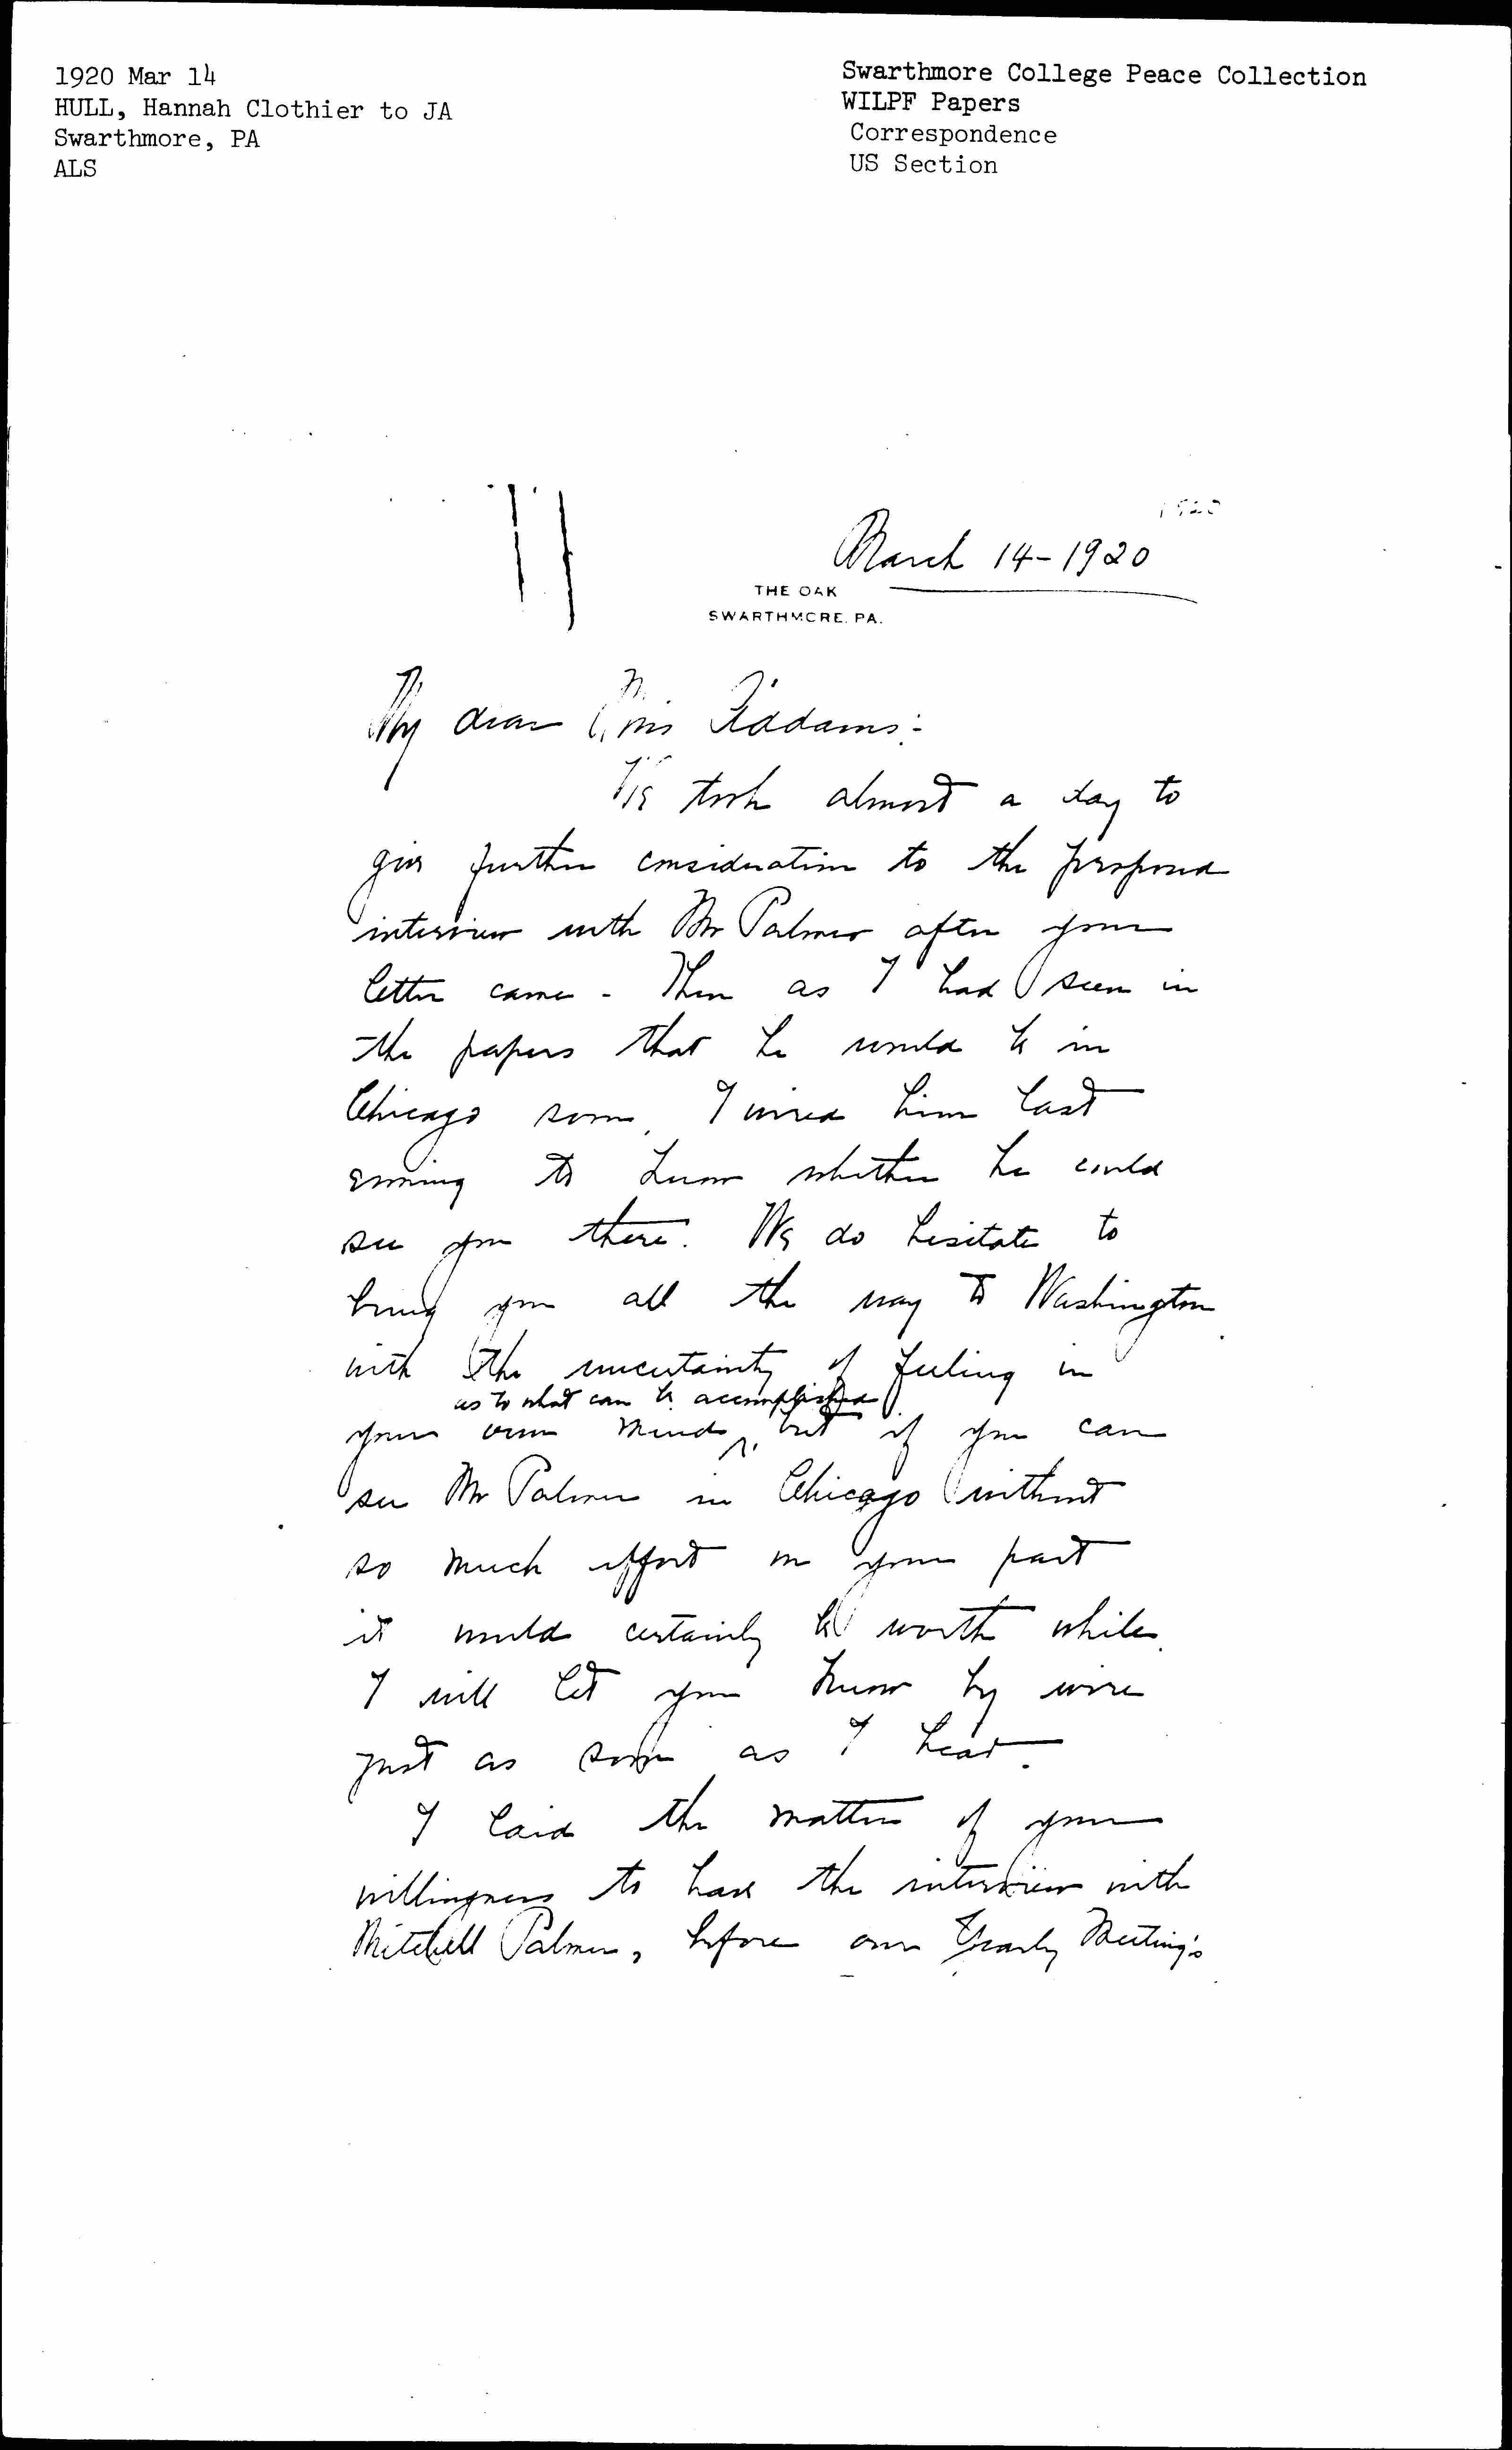 1920 Mar 14
HULL, Hannah Clothier to JA
Swarthmore, PA
ALS
Swarthmore College Peace Collection
WILPF Papers
Correspondence
US Section
1920
March 14-1920
THE OAK
SWARTHMORE, PA.
My dear Miss Addams:-
We took almost a day to
give further consideration to the proposed
interview with Mr Palmer after your
letter came - Then as I had seen in
the papers that he would be in
Chicago soon, I wired him last
evening to know whether he could
see you there. We do hesitate to
bring you all the way to Washington
with the uncertainty of feeling in
as to what can be accomplished
your own mind, but if you can
see Mr Palmer in Chicago without
so much effort on your part
it would certainly be worth while.
I will let you know by wire
just as soon as I hear.
I laid the matter of your
willingness to have the interview with
Mitchell Palmer, before our Yearly Meeting's